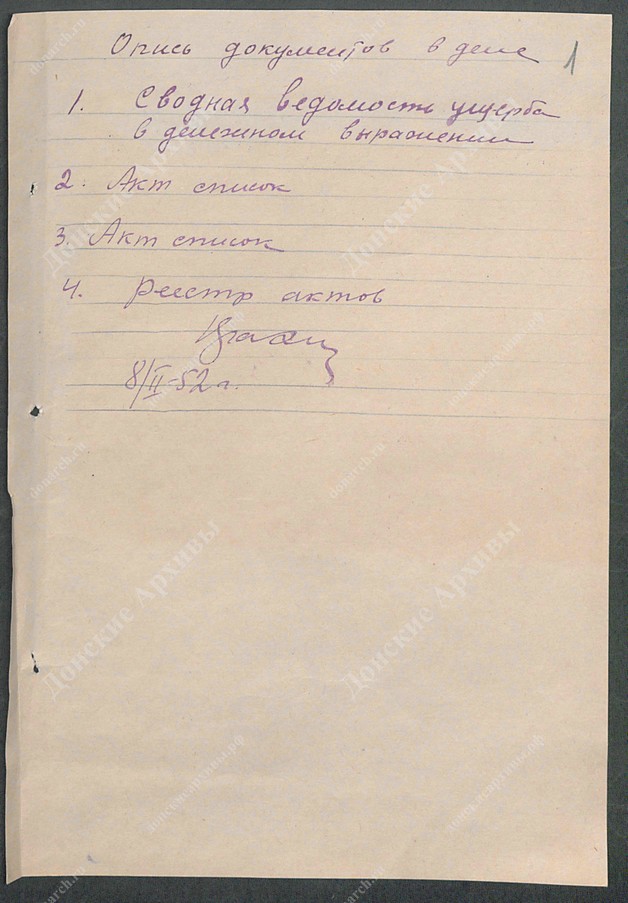 Опись документов в деле
1
1. Сводная ведомость ущерба
в денежном выражении
2. Акт список
3. Акт список
4. Реестр актов
8/II-52 г.
donarch.ru
Донские Архивы
донскиеархивы.рф